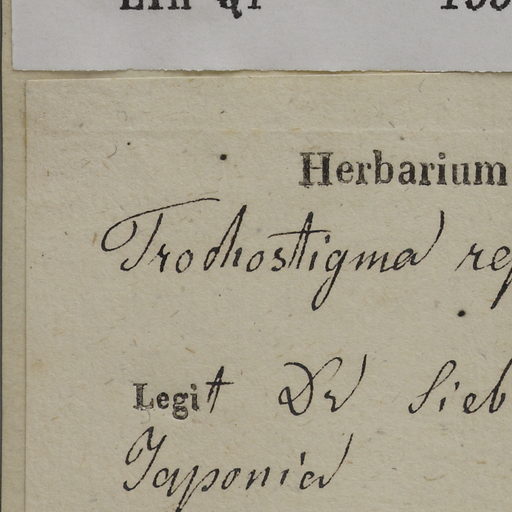 Herbarium
Trochostigma rep
Legit Dr Sieb
Japonia